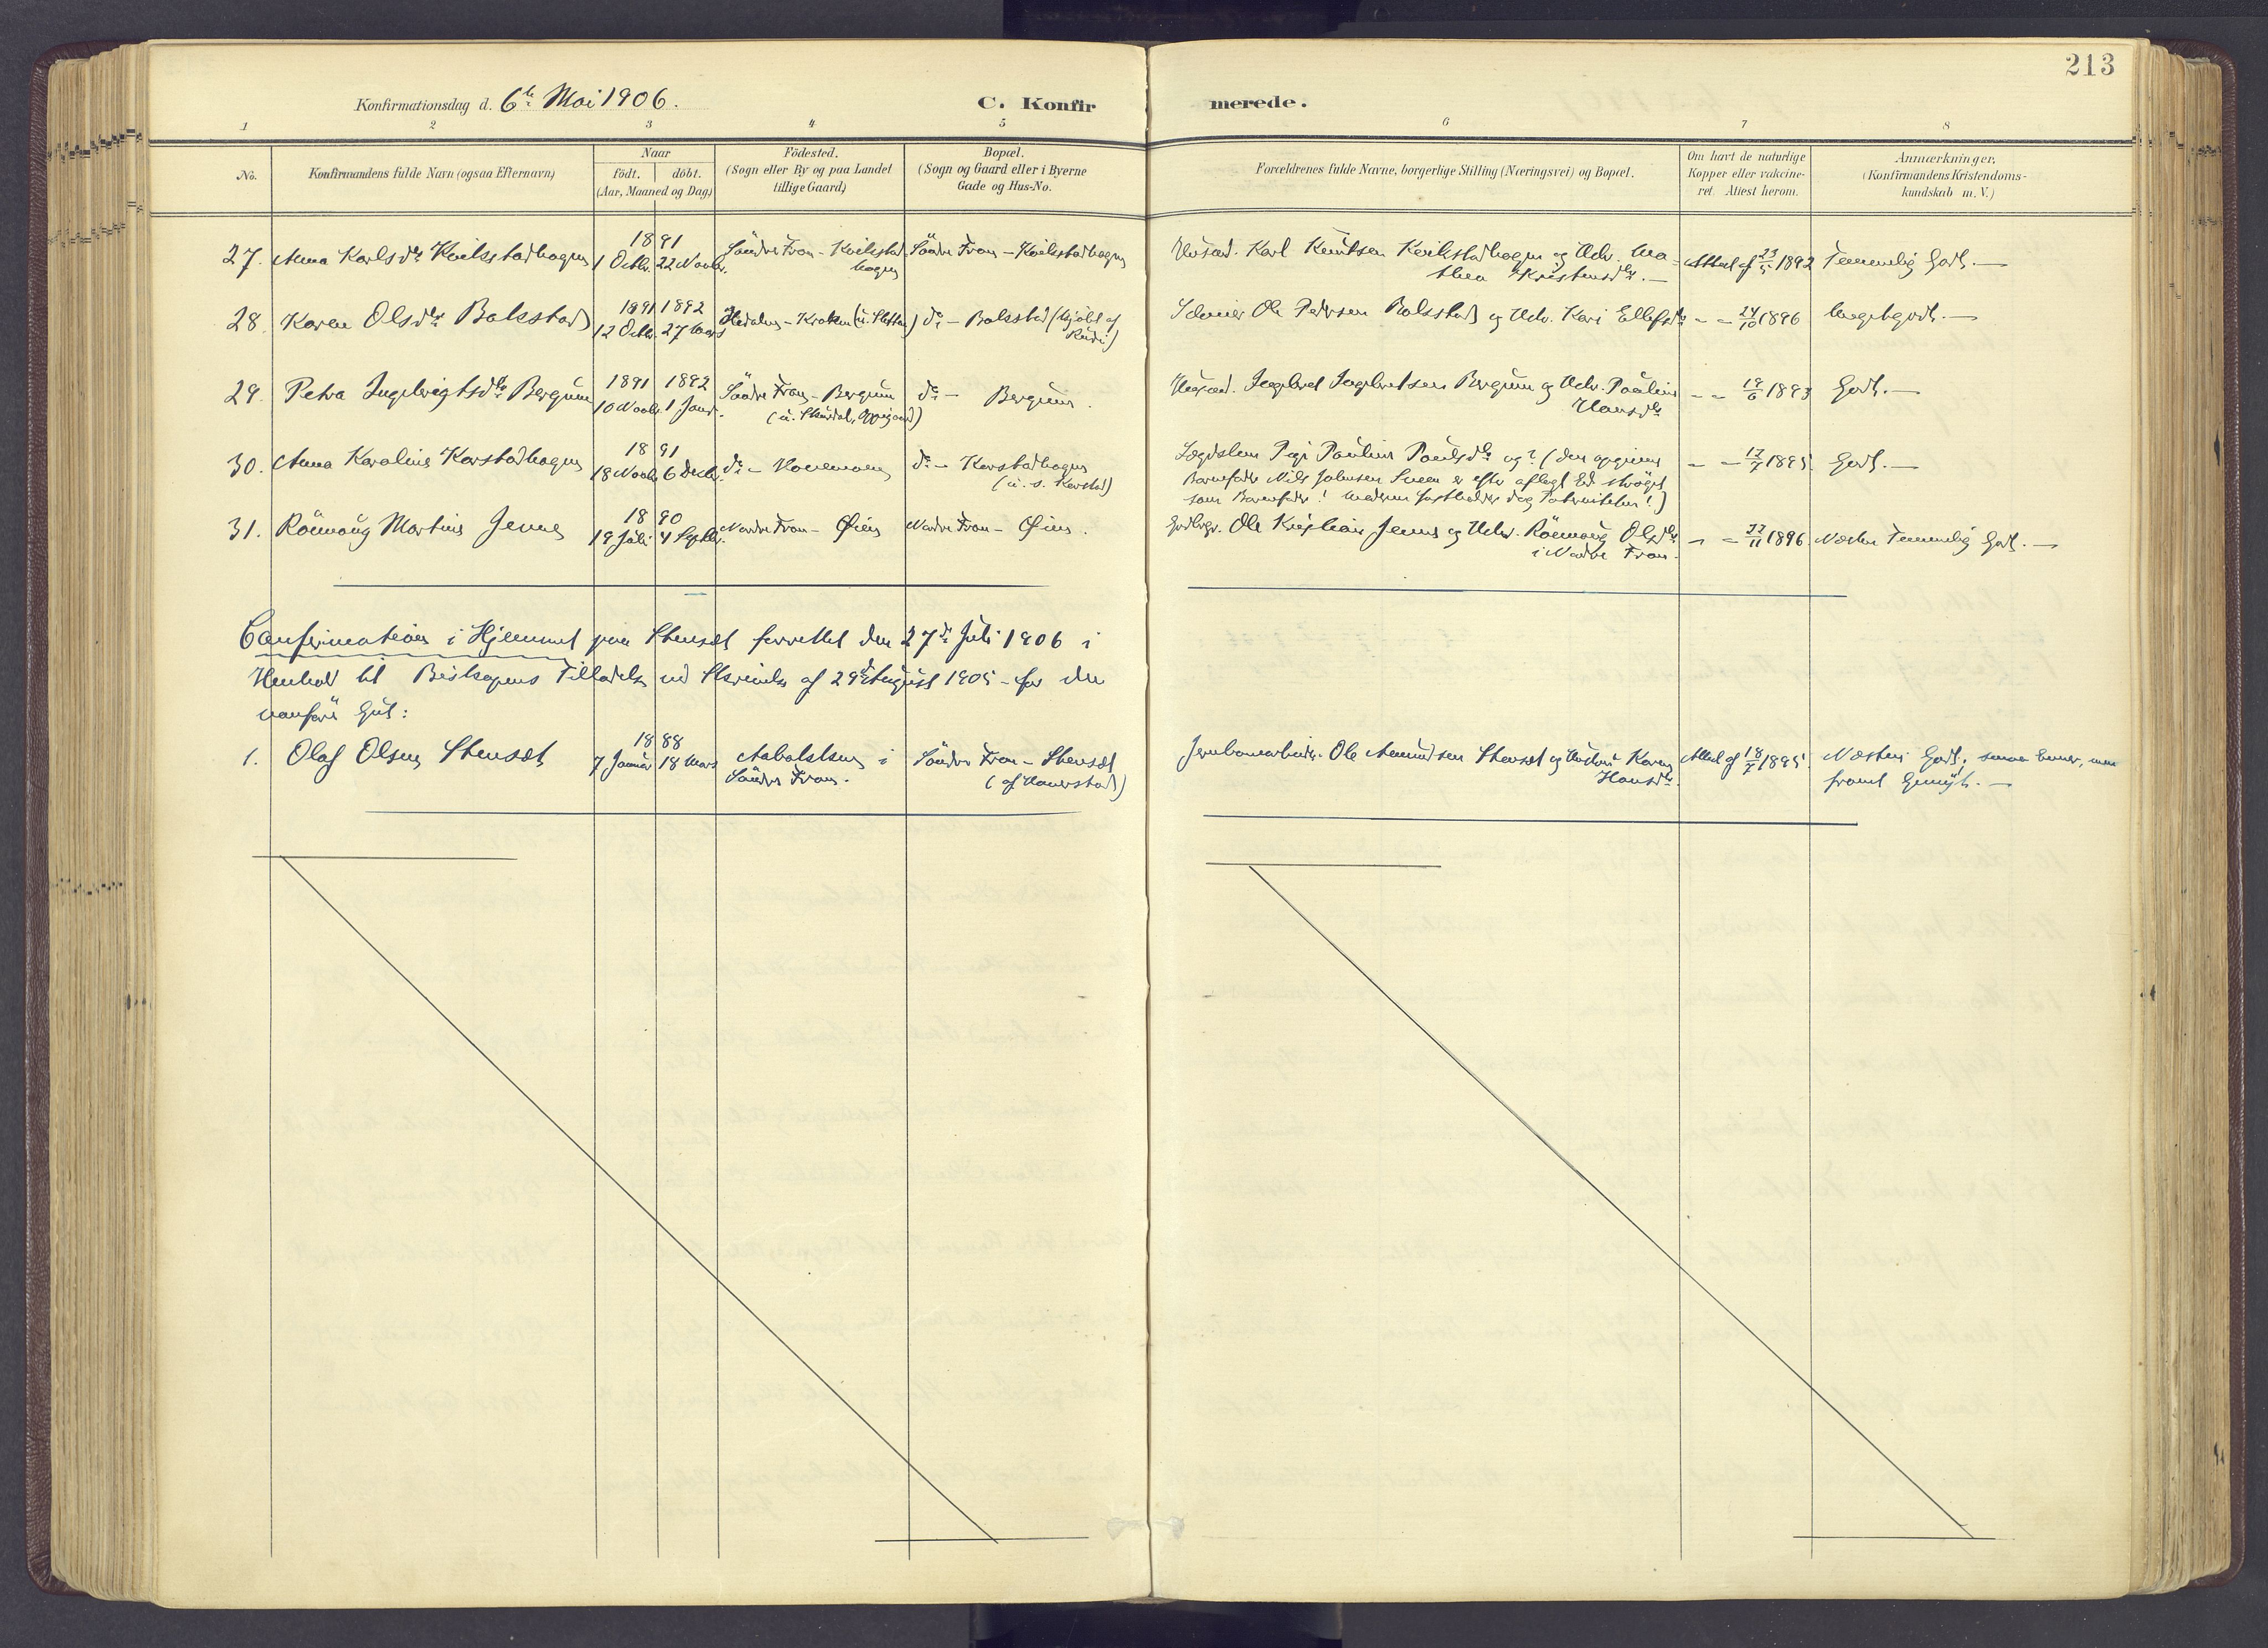 213
Konfirmationsdag d. 6te Mai 1906.
C. Konfirmerede.
1 2 3 4 5 6 7 8
No.
Konfirmandens fulde Navn (ogsaa Efternavn)
Naar
födt. döbt.
(Aar, Maaned og Dag)
Födested.
(Sogn eller By og paa Landet
tillige Gaard)
Bopæl.
(Sogn og Gaard eller i Byerne
Gade og Hus-No.
Forældrenes fulde Navne, borgerlige Stilling (Næringsvei) og Bopæl.
Om havt de naturlige
Kopper eller vakcine-
ret. Attest herom.
Anmærkninger.
(Konfirmandens Kristendoms-
kundskab m. V.)
27. Anna Karlsdtr Kvikstadhagen 1891 1 Octbr. 22 Novbr. Söndre Fron - Kvikstadhagen Söndre Fron - Kvikstadhagen Husmd. Karl Knutsen Kvikstadhagen og Hstr. Ma-
thea Kristensdtr. - Attest af 23/5 1892 Temmelig Godt. -
28. Karen Olsdtr Bakstad 1891 12 Octbr. 1892 27 Mars Hedalen - Kraken (u. Sletten) do - Bakstad (Kjøbt af
Rudi) Ole Pedersen Bakstad og Hstr. Kari Ellefsdtr - - 24/10 1896 Meget godt. -
29. Petra Ingebrigtsdtr Bergum 1891 10 Novbr. 1892 1 Januar. Söndre Fron - Bergum
(u. Skurdal, Oppigaard) do - Bergum. Husmd. Ingebret Ingebretsen Bergum og Hstr. Pauline
Hansdtr - - 19/6 1893 Godt. -
30. Anna Karoline Korstadhagen 1891 18 Novbr. 6 Decbr. do - do - Korstadhagen
(u. s. Korstad) Pige Pauline Paulsdtr og? (den opgivne
Barnefader Nils Johnsen Sveen er efter aflagt Ed strøget
som Barnefader! Moderen fastholder dog Paterniteten!) - - 17/7 1895 Godt. -
31. Rönnaug Martine Jenne 1890 19 Juli 4 Septbr. Nordre Fron - Øien Nordre Fron - Øien. Gaardbrgr. Ole Kristian Jenne og Hstr. Rönnaug Olsdtr
i Nordre Fron. - - 27/11 1896. Næsten Temmelig Godt. -
Confirmation i Hjemmet paa Stensæt forrettet den 27de Juli 1906 i
Henhold til Biskopens Tilladelse ved Skrivelse af 29de August 1905 - for den
vanföre Gut:
1. Olaf Olsen Stensæt 1888 7 Januar 18 Mars i
Söndre Fron. Söndre Fron - Stensæt
(af Haverstad) Jernbanearbeider Ole Amundsen Stensæt og Hustru Karen
Hansdtr. Attest af 18/7 1895. Næsten Godt; smaa Evner, men
fromt Gemyt. -